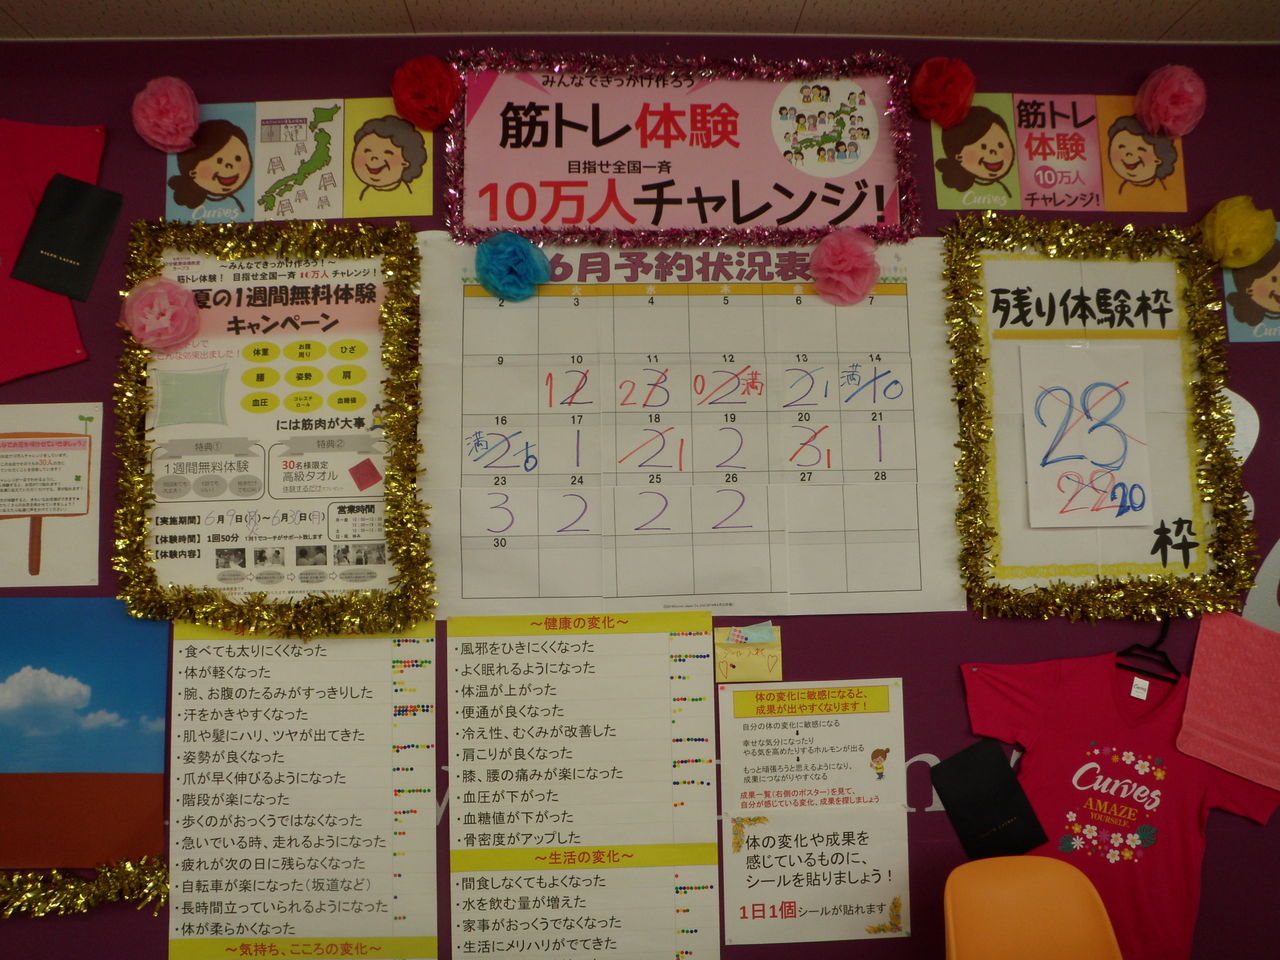 みんなできっかけ作ろう
筋トレ体験
目指せ全国一斉
10万人チャレンジ!
Curves
筋トレ
体験
10万人
チャレンジ!
Curves
～みんなできっかけ作ろう！～
筋トレ体験！ 目指せ全国一斉 10万人チャレンジ！
夏の1週間無料体験
キャンペーン
こんな効果出ました！
体重 お腹周り ひざ
腰 姿勢 肩
血圧 コレステロール 血糖値
には筋肉が大事
特典① 特典②
1週間無料体験
30名様限定
高級タオル
営業時間
【実施期間】6月9日(月)～6月30日(月)
【体験時間】1回50分
【体験内容】
6月予約状況表
火 水 木 金
2 3 4 5 6 7
9 10 11 12 13 14
1 2 2 3 0 2 満 2 1 満 1 0
16 17 18 19 20 21
満 2 0 1 2 1 2 3 1 1
23 24 25 26 27 28
3 2 2 2
30
残り体験枠
23
22 20
枠
・食べても太りにくくなった
・体が軽くなった
・腕、お腹のたるみがすっきりした
・汗をかきやすくなった
・肌や髪にハリ、ツヤが出てきた
・姿勢が良くなった
・爪が早く伸びるようになった
・階段が楽になった
・歩くのがおっくうではなくなった
・急いでいる時、走れるようになった
・疲れが次の日に残らなくなった
・自転車が楽になった（坂道など）
・長時間立っていられるようになった
・体が柔らかくなった
～気持ち、こころの変化～
～健康の変化～
・風邪をひきにくくなった
・よく眠れるようになった
・体温が上がった
・便通が良くなった
・冷え性、むくみが改善した
・肩こりが良くなった
・膝、腰の痛みが楽になった
・血圧が下がった
・血糖値が下がった
・骨密度がアップした
～生活の変化～
・間食しなくてもよくなった
・水を飲む量が増えた
・家事がおっくうでなくなった
・生活にメリハリがでてきた
シール入れ
体の変化に敏感になると、
成果が出やすくなります！
自分の体の変化に敏感になる
幸せな気分になったり
やる気を高めたりするホルモンが出る
もっと頑張ろうと思えるようになり、
成果につながりやすくなる
成果一覧(右側のポスター)を見て、
自分が感じている変化、成果を探しましょう
体の変化や成果を
感じているものに、
シールを貼りましょう！
1日1個シールが貼れます
Curves
AMAZE
YOURSELF.